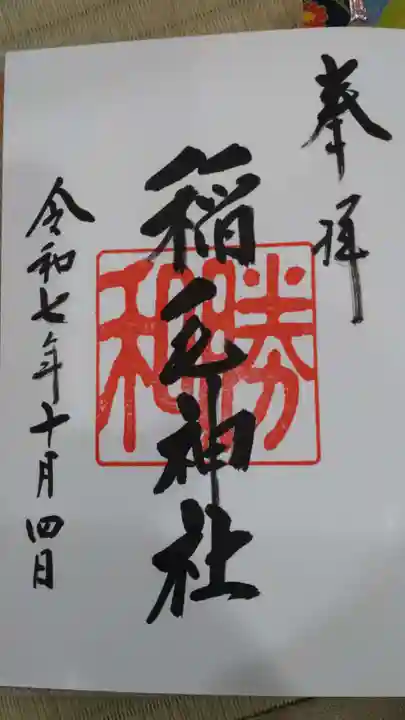 奉拝
稲毛神社
勝和
令和七年十月四日